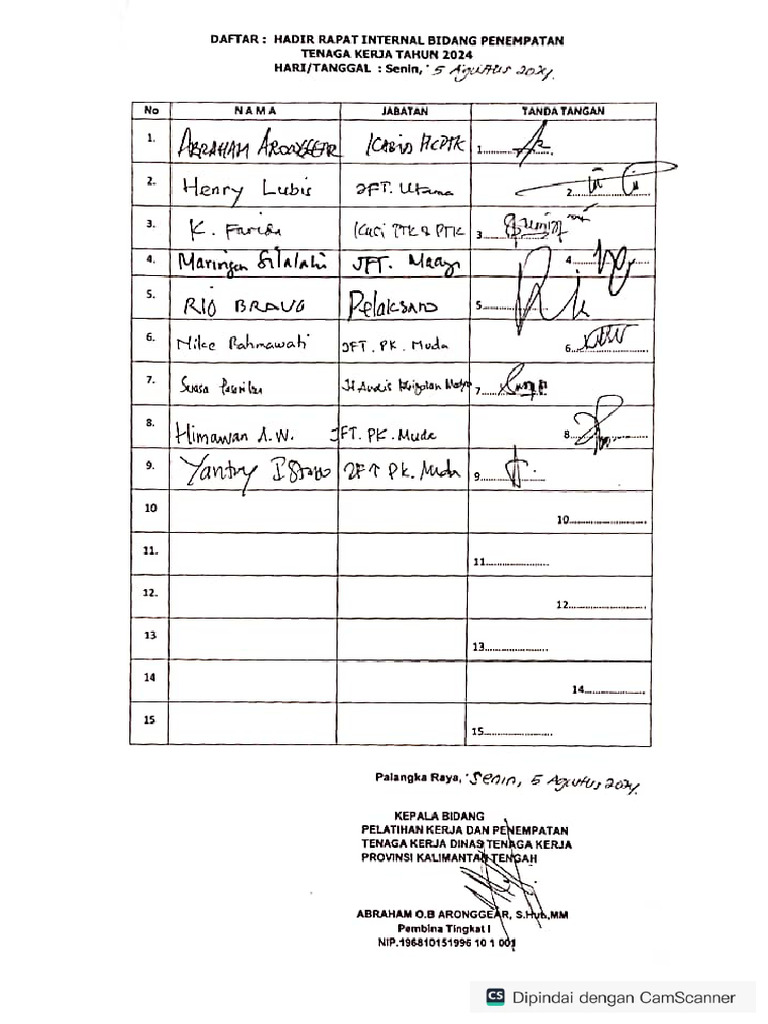 DAFTAR : HADIR RAPAT INTERNAL BIDANG PENEMPATAN
TENAGA KERJA TAHUN 2024
HARI/TANGGAL : Senin, 5 Agustus 2024.
No NAMA JABATAN TANDA TANGAN
1. ABRAHAM ARONGGEAR KABID 1...............
2. Henry Lubis JFT. Utama 2...............
3. K. Farida 3...............
4. Maringan Silalahi JFT. 4...............
5. RIO BRAVO Pelaksana 5...............
6. Mike Rahmawati JFT. PK. Muda 6...............
7. 7...............
8. Himawan A.W. JFT. PK. Muda 8...............
9. Yantry JFT PK. Muda 9...............
10 10...............
11. 11...............
12. 12...............
13 13...............
14 14...............
15 15...............
Palangka Raya, Senin, 5 Agustus 2024.
KEPALA BIDANG
PELATIHAN KERJA DAN PENEMPATAN
TENAGA KERJA DINAS TENAGA KERJA
PROVINSI KALIMANTAN TENGAH
ABRAHAM O.B ARONGGEAR, S.Hut,MM
Pembina Tingkat I
NIP.196810151996 10 1 001
CS Dipindai dengan CamScanner